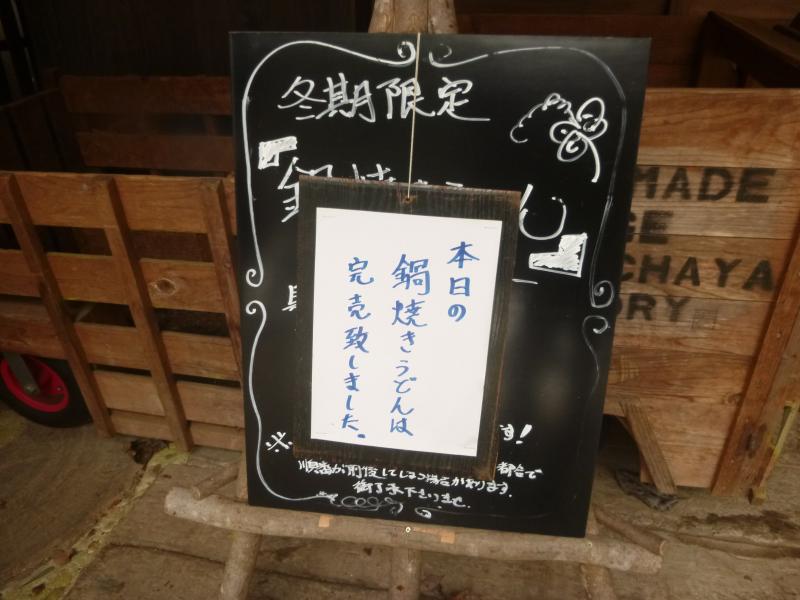 冬期限定
鍋焼きうどん
本日の
鍋焼きうどんは
完売致しました。
※
す!
順番が前後してしまう場合が有ります。
都合で
御了承下さいませ。
MADE
CHAYA